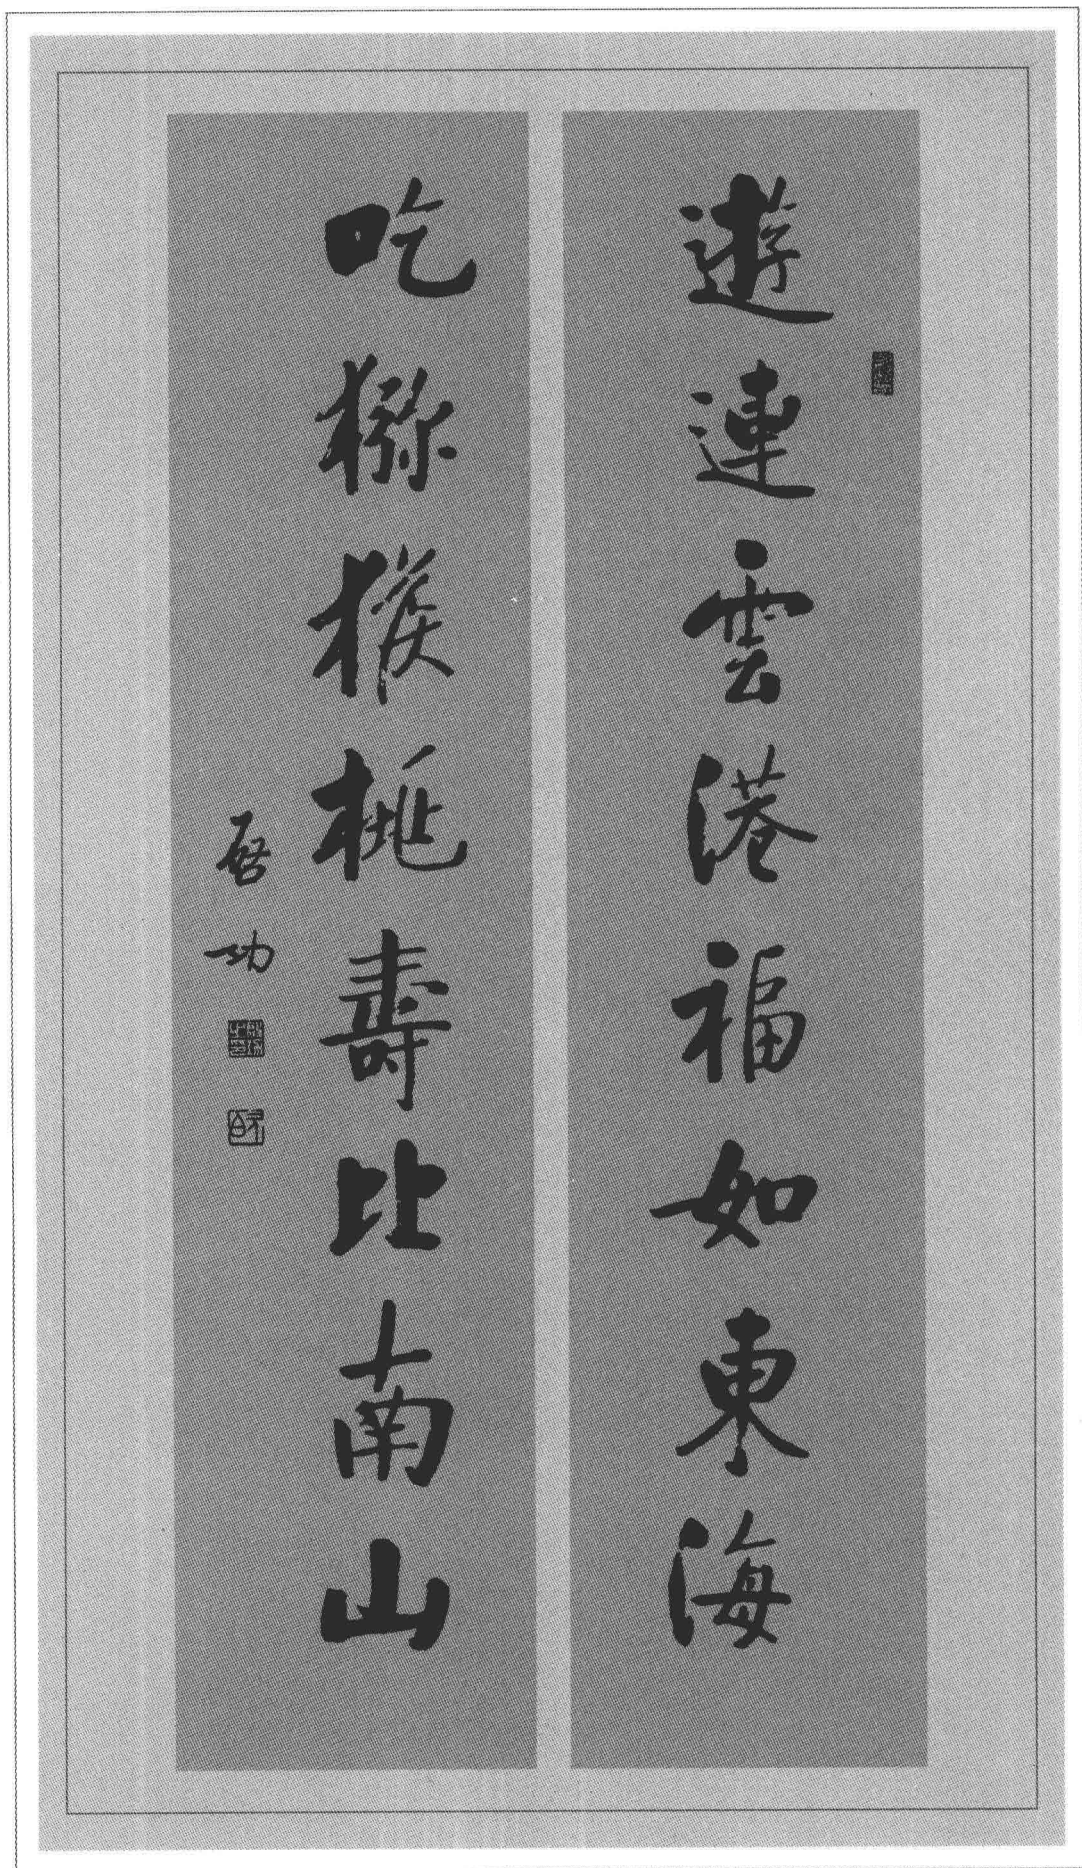 遊連雲港福如東海
吃獼猴桃壽比南山
啓功